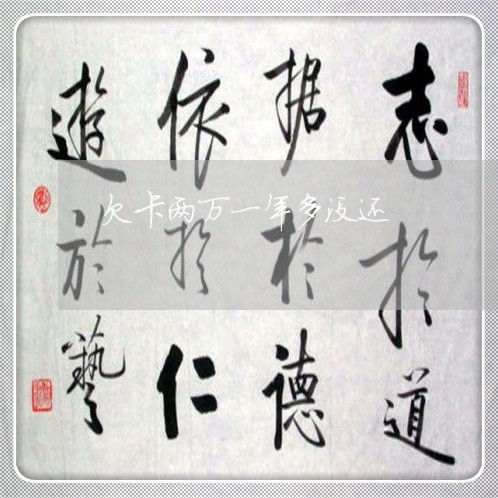 志扵道
据扵德
依扵仁
遊於藝
欠卡两万一年多没还